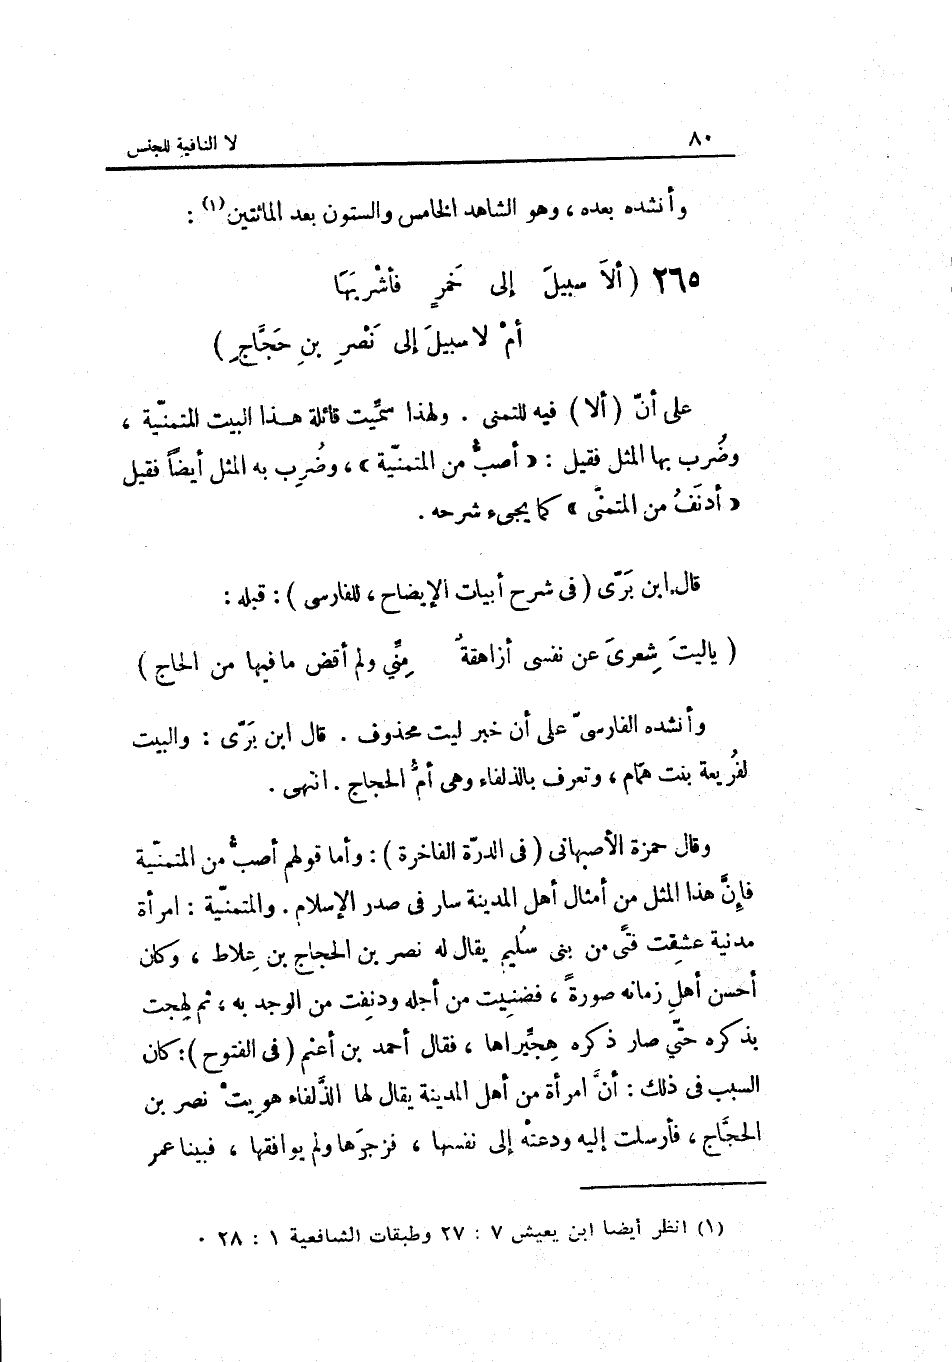 ٨٠ لا النافية للجنس
وأنشده بعده ، وهو الشاهد الخامس والستون بعد المائتين (١) :
٢٦٥ ( ألاَ سبيلَ إلى خَمرٍ فأشْربَهَا
أمْ لا سبيلَ إلى نَصْرِ بنِ حَجَّاجِ )
على أنّ ( ألا ) فيه للتمنى . ولهذا سمِّيت قائلة هــذا البيت المتمنّية ،
وضُرب بها المثل فقيل : « أصبُّ من المتمنّية » ، وضُرِب به المثل أيضاً فقيل
« أدنَفُ من المتمنَّى » كما يجىء شرحه .
قال ابن بَرّى ( فى شرح أبيات الإيضاح ، للفارسى ) : قبله :
( ياليتَ شِعرىَ عن نفسى أزاهقةٌ مِنِّي ولم أقض ما فيها من الحاج )
وأنشده الفارسىّ على أن خبر ليت محذوف . قال ابن بَرّى : والبيت
لفُريعة بنت همّام ، وتعرف بالذلفاء وهى أمُّ الحجاج . انتهى .
وقال حمزة الأصبهانى ( فى الدرّة الفاخرة ) : وأما قولهم أصبُّ من المتمنّية
فإنَّ هذا المثل من أمثال أهل المدينة سار فى صدر الإسلام . والمتمنّية : امرأة
مدنية عشِقت فتًى من بنى سُليم يقال له نصر بن الحجاج بن عِلاط ، وكان
أحسن أهلِ زمانه صورةً ، فضنيِت من أجله ودنِفت من الوجد به ، ثم لهِجت
بذكره حتّي صار ذكره هِجِّيراها ، فقال أحمد بن أعثم ( فى الفتوح ) : كان
السبب فى ذلك : أنَّ امرأة من أهل المدينة يقال لها الذَّلفاء هوِيتْ نصر بن
الحجَّاج ، فأرسلت إليه ودعتْه إلى نفسها ، فزجرَها ولم يوافقها ، فبينا عمر
(١) انظر أيضا ابن يعيش ٧ : ٢٧ وطبقات الشافعية ١ : ٢٨ .